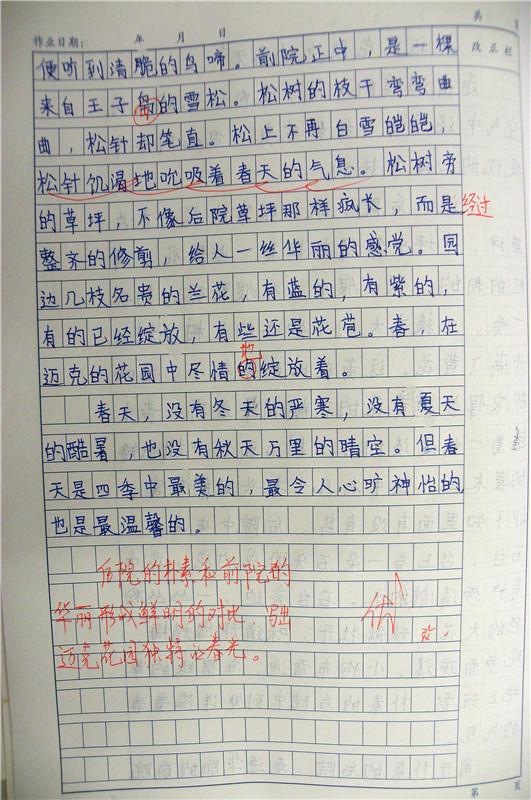 共
作业日期： 年 月 日
改正栏
便听到清脆的鸟啼。前院正中，是一棵
来自王子岛的雪松。松树的枝干弯弯曲
曲，松针却笔直。松上不再白雪皑皑，
松针饥渴地吮吸着春天的气息。松树旁
的草坪，不像后院草坪那样疯长，而是经过
整齐的修剪，给人一丝华丽的感觉。园
边几枝名贵的兰花，有蓝的，有紫的，
有的已经绽放，有些还是花苞。春，在
地
迈克的花园中尽情的绽放着。
春天，没有冬天的严寒，没有夏天
的酷暑，也没有秋天万里的晴空。但春
天是四季中最美的，最令人心旷神怡的，
也是最温馨的。
后院的朴素和前院的
华丽形成鲜明的对比，写出
迈克花园独特的春光。
优
第 页